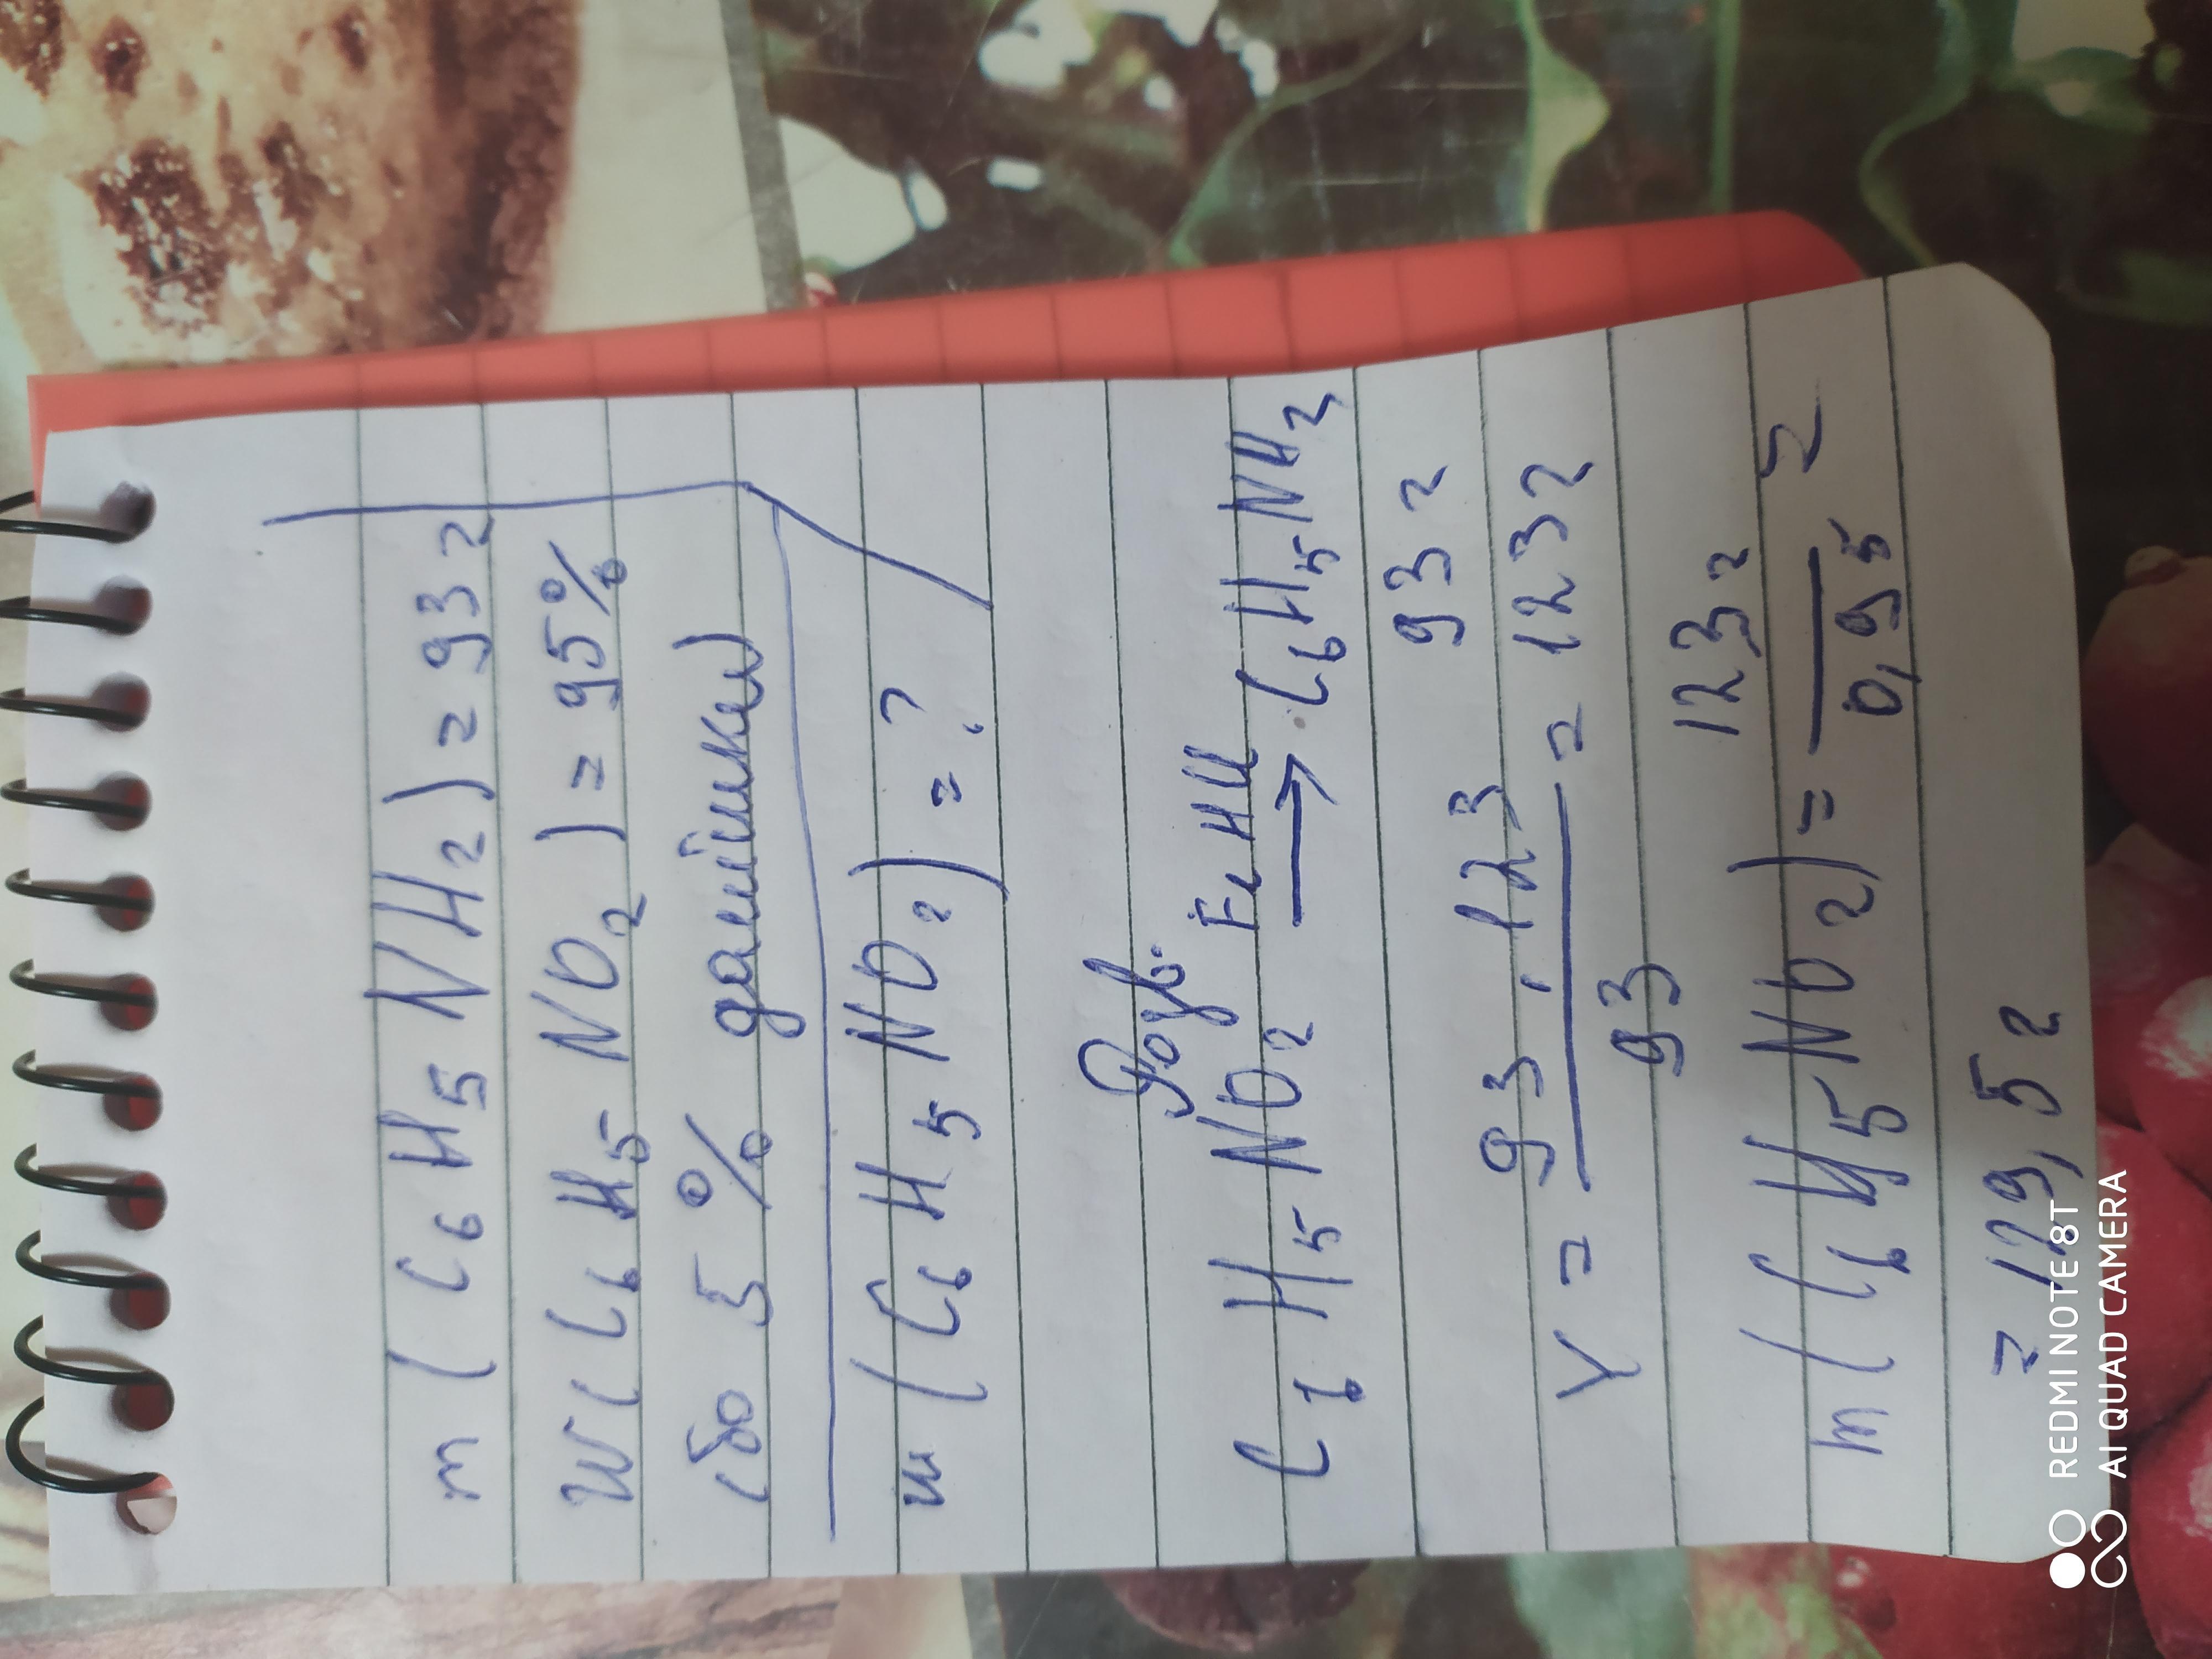 m (C6H5NH2) = 93 г
W(C6H5NO2) = 95%
(бо 5% домішки)
m (C6H5NO2) = ?
Розв.
Fe HCl
C6H5NO2 → C6H5NH2
93 г
Y = 93 . 123 / 93 = 123 г
m (C6H5NO2) = 123 г / 0,95 =
= 129,5 г
REDMI NOTE 8T
AI QUAD CAMERA